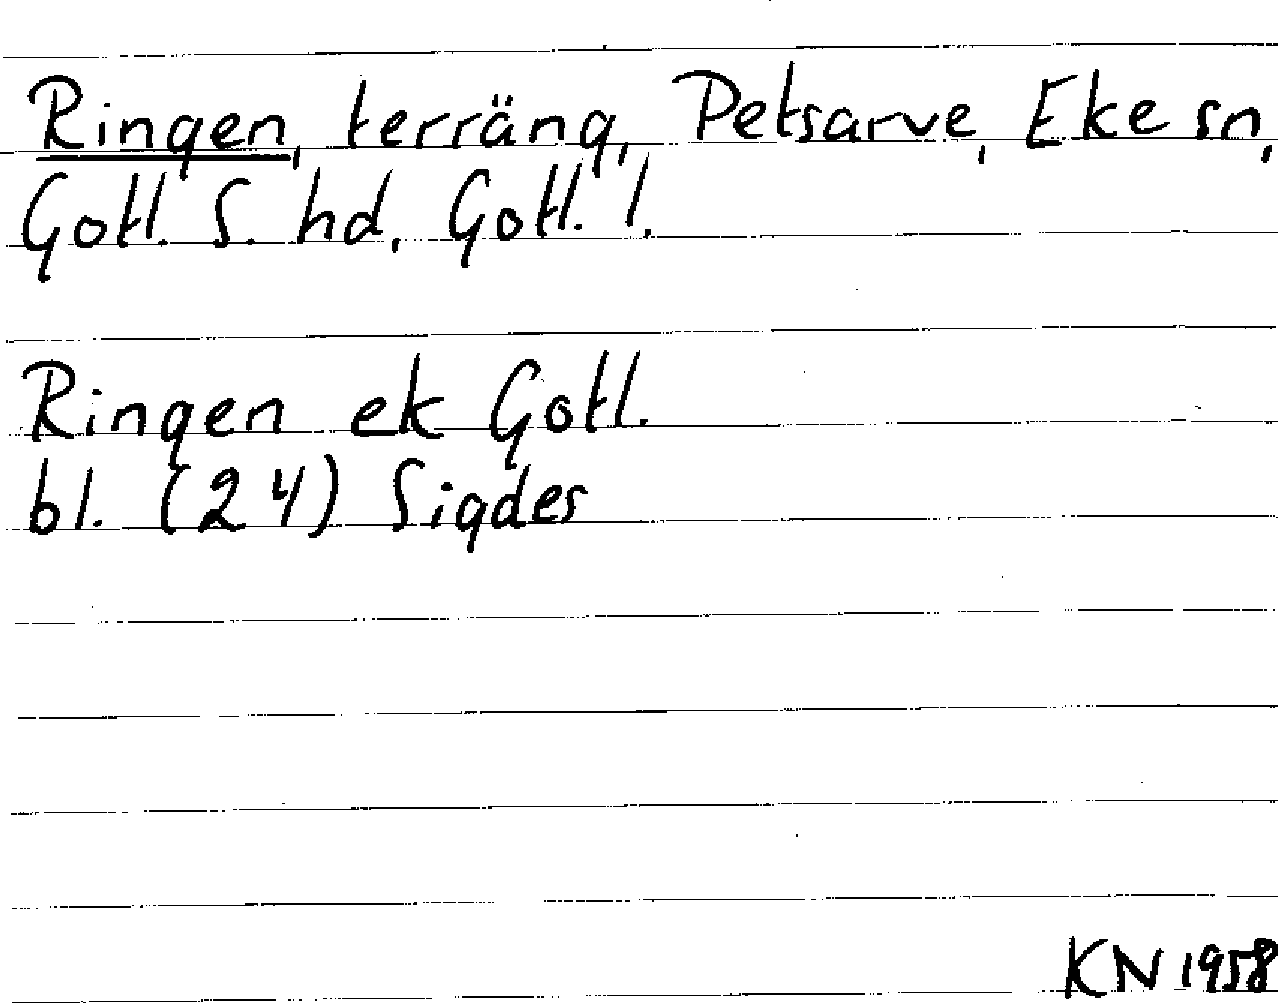 Ringen, terräng, Petsarve, Eke sn,
Gotl. S. hd, Gotl. l.
Ringen ek Gotl.
bl. (24) Sigdes
KN 1958